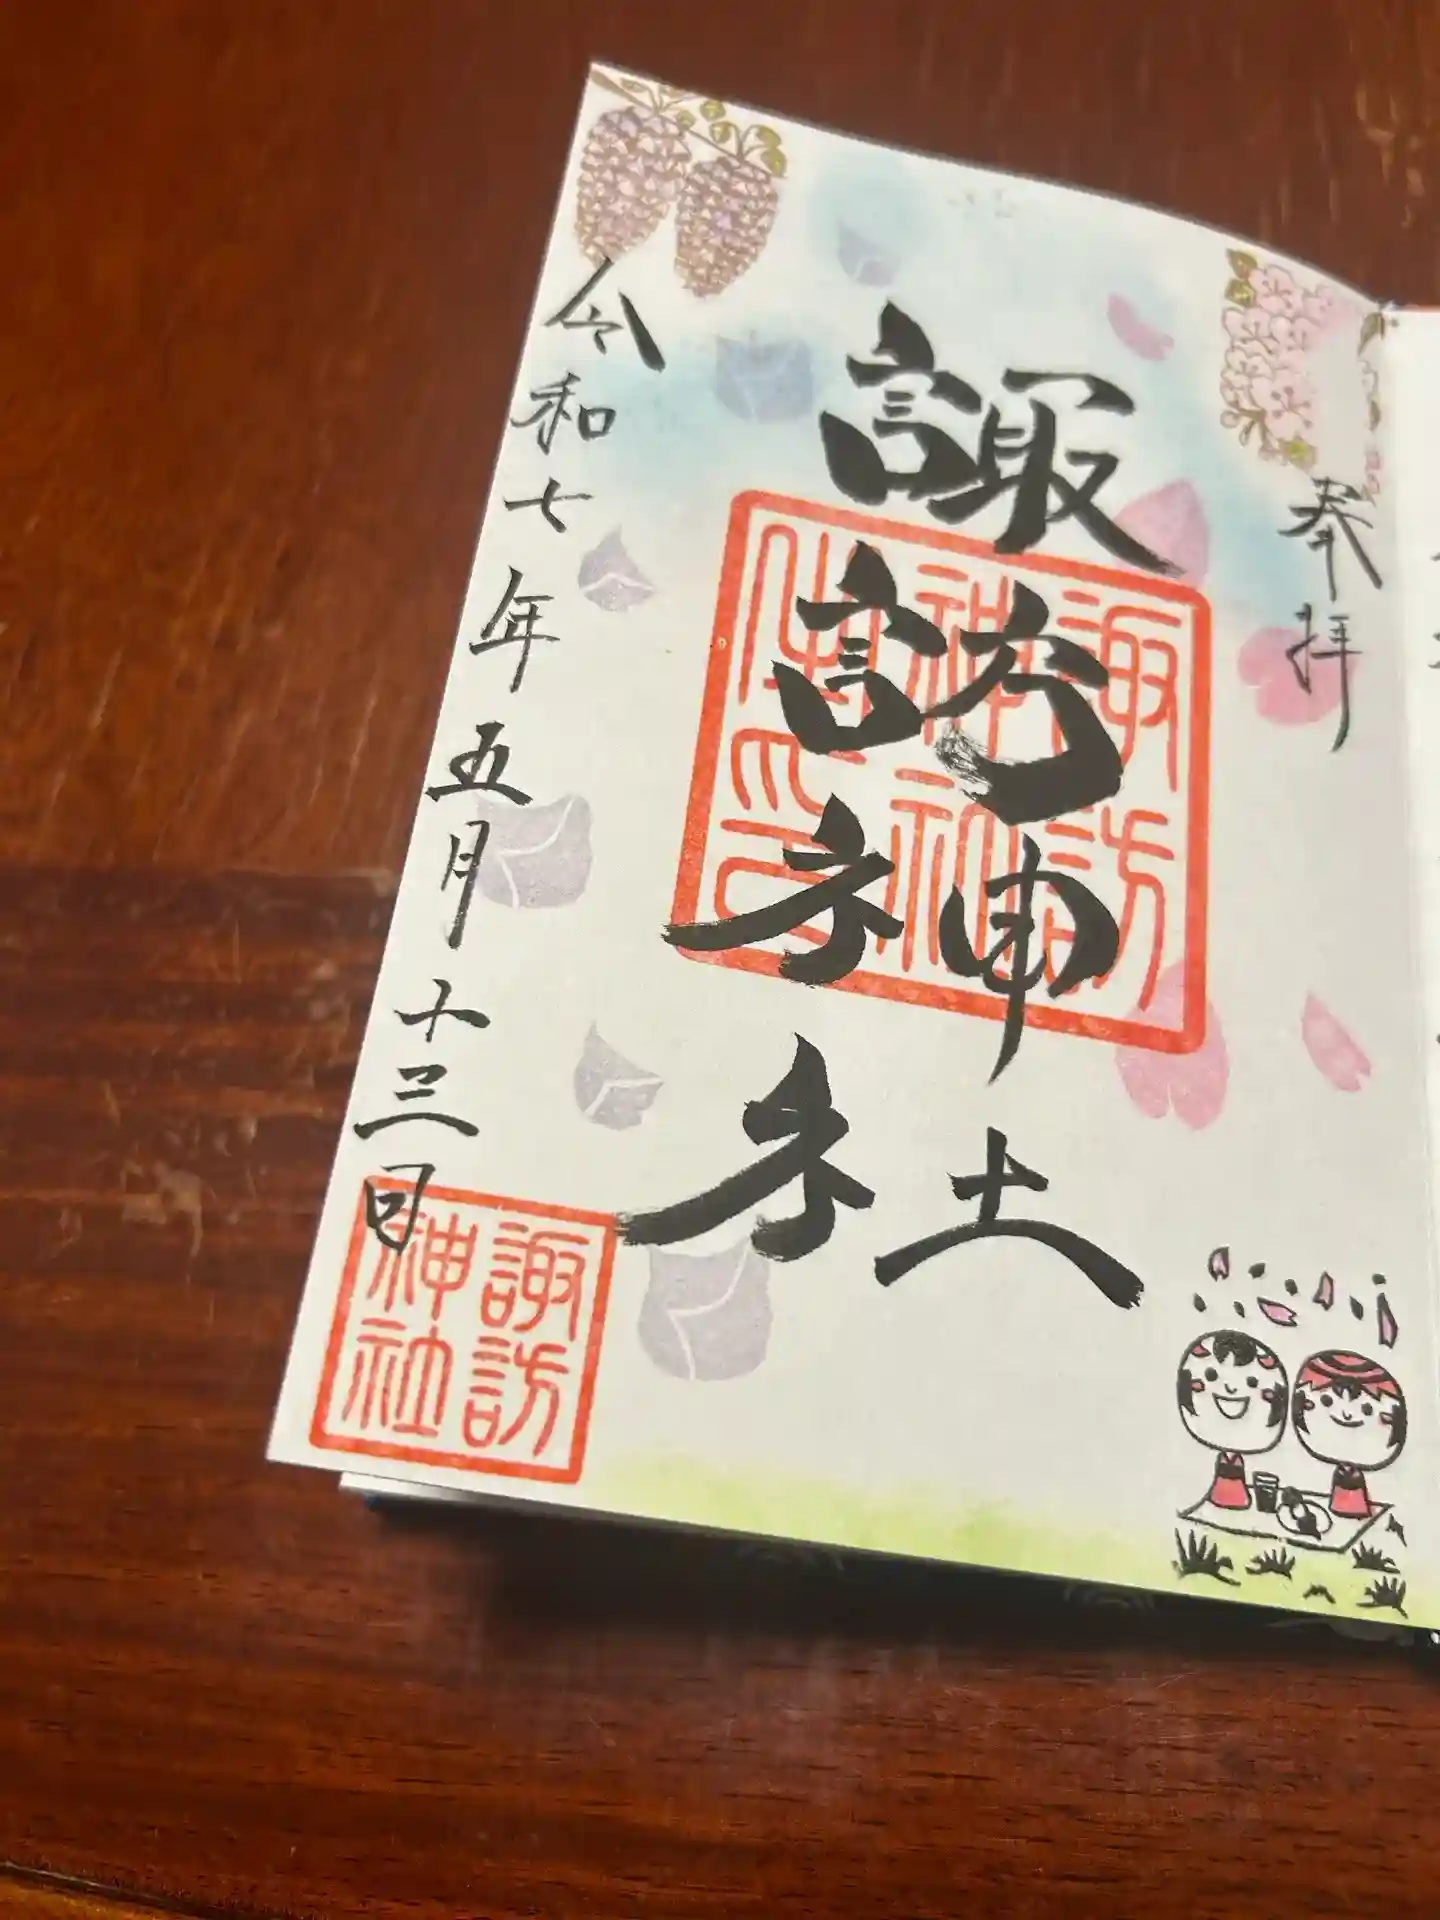 奉拝
諏訪神社
諏訪
神社
令和七年五月十三日
諏訪
神社